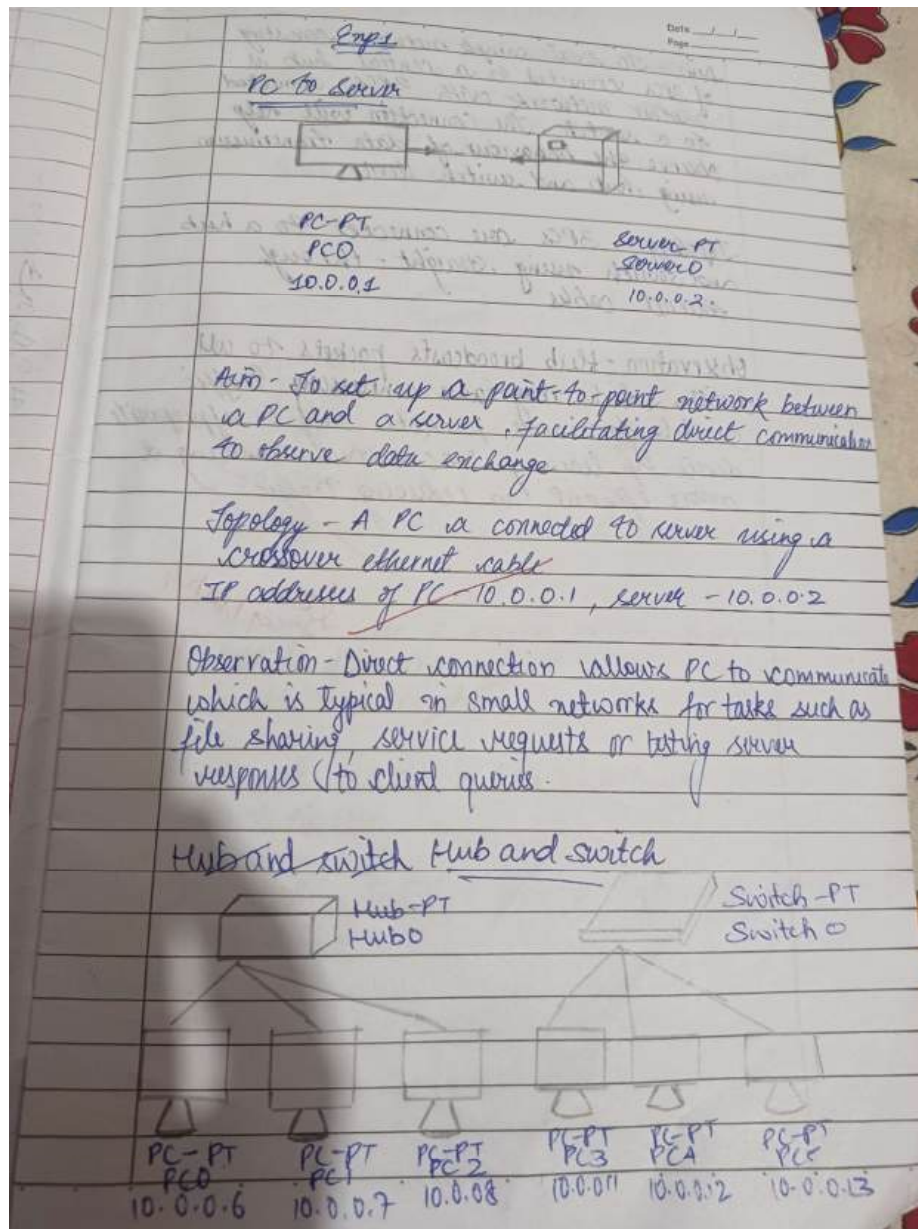 Date
Page
Exp1
PC to Server
PC-PT
PC0
10.0.0.1
Server-PT
Server0
10.0.0.2
Aim - To set up a point-to-point network between
a PC and a server, facilitating direct communication
to observe data exchange
Topology - A PC a connected to server using a
crossover ethernet cable
IP addresses of PC - 10.0.0.1, server - 10.0.0.2
Observation - Direct connection allows PC to communicate
which is typical in small networks for tasks such as
file sharing, service requests or testing server
responses to client queries.
Hub and switch Hub and switch
Hub-PT
Hub0
Switch-PT
Switch 0
PC-PT
PC0
10.0.0.6
PC-PT
PC1
10.0.0.7
PC-PT
PC2
10.0.08
PC-PT
PC3
10.0.011
PC-PT
PC4
10.0.0.12
PC-PT
10.0.0.13